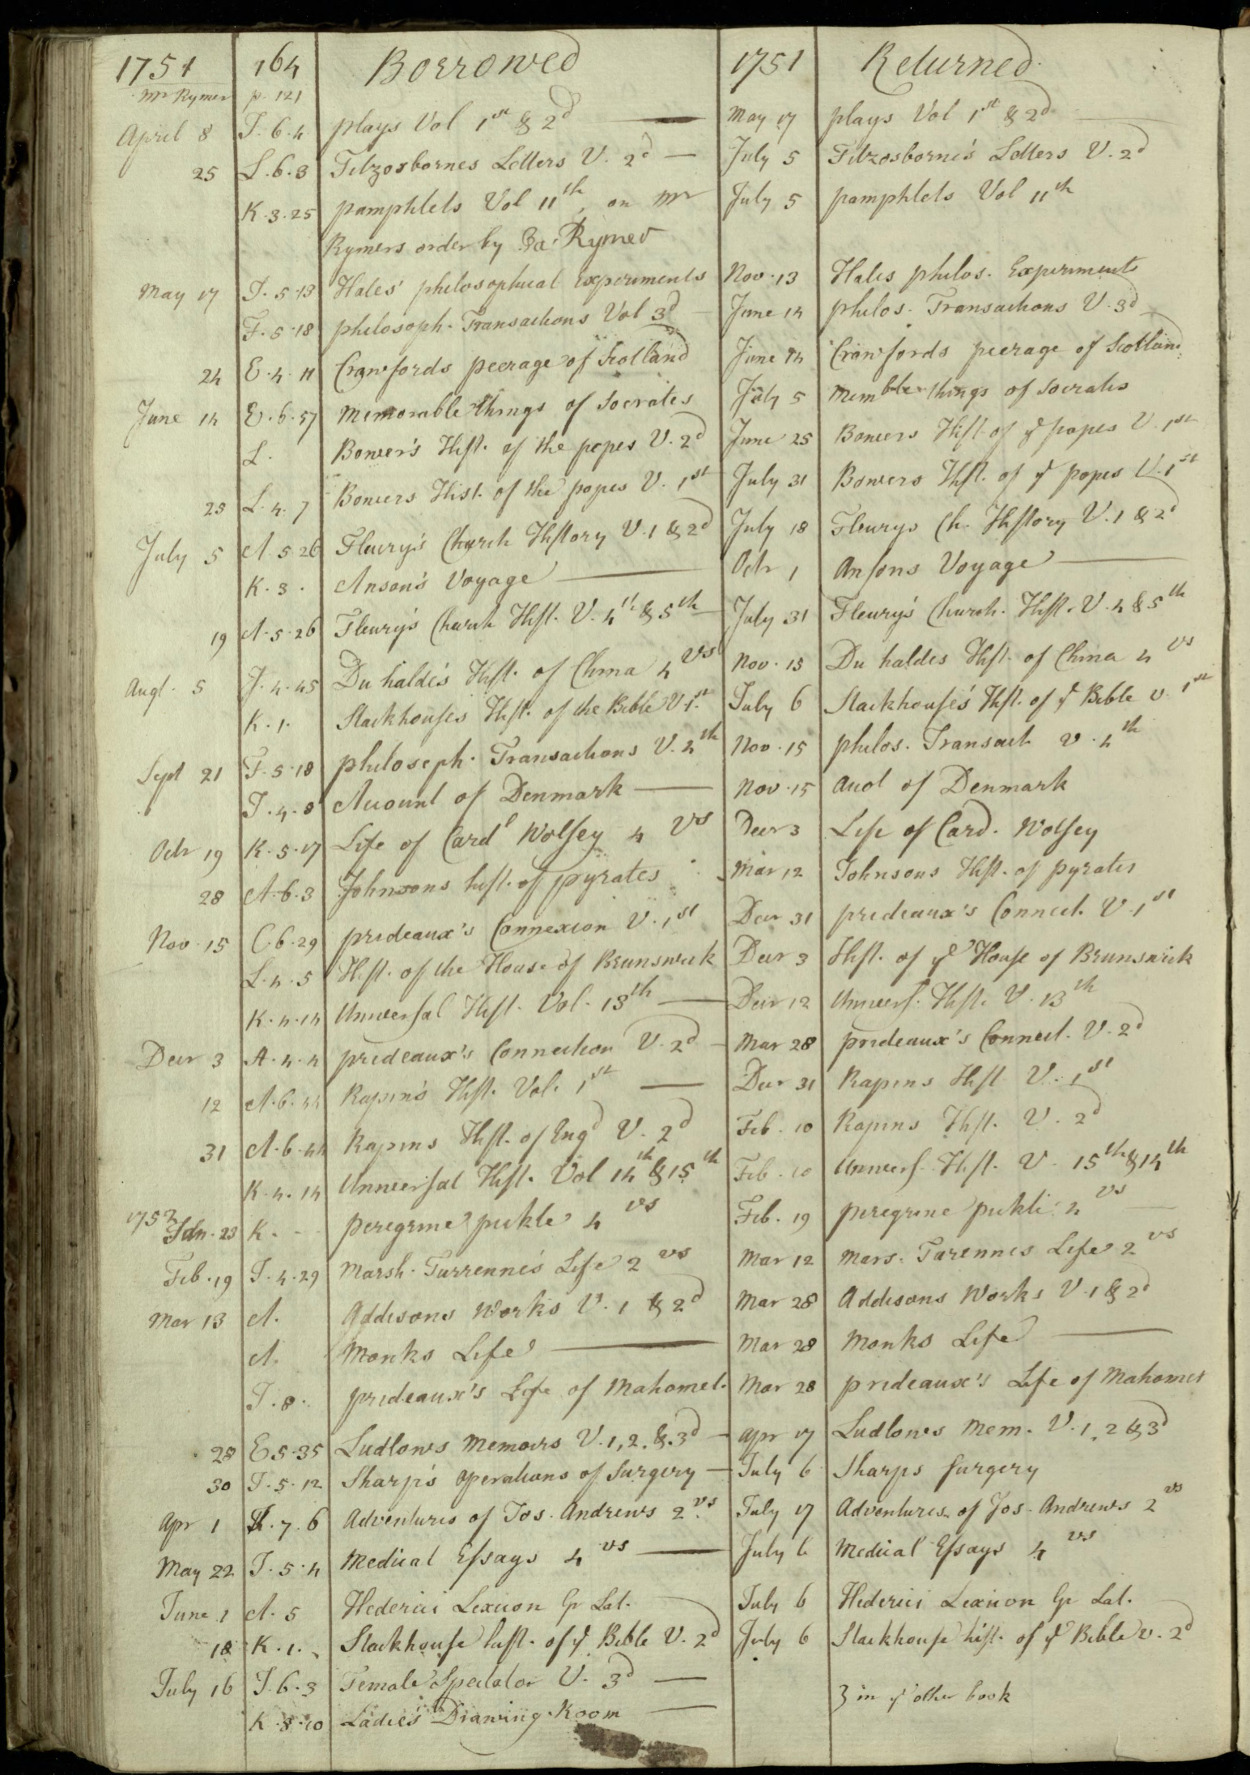 1751 164 Borrowed 1751 Returned
Mr Rymer p. 121
April 8 I.6.4 plays Vol 1st & 2d May 17 plays Vol 1st & 2d
25 L.6.3 Fitzosbornes Letters V. 2d July 5 Fitzosborne's Letters V. 2d
K.3.25 pamphlets Vol 11th, on Mr July 5 pamphlets Vol 11th
Rymers order by Ja: Rymer
May 17 I.5.13 Hales' philosophical Experiments Nov. 13 Hales philos. Experiments
F.5.18 philosoph. Transactions Vol 3d June 14 philos. Transactions V. 3d
24 E.4.11 Crawfords peerage of Scotland June 14 Crawfords peerage of Scotland
June 14 E.6.57 memorable things of Socrates July 5 memble things of Socrates
L. Bower's Hist. of the popes V. 2d June 25 Bowers Hist. of ye popes V. 1st
25 L.4.7 Bowers Hist. of the popes V. 1st July 31 Bowers Hist. of ye popes V. 1st
July 5 A.5.26 Fleury's Church History V. 1 & 2d July 18 Fleurys Ch. History V. 1 & 2d
K.3. Anson's Voyage Octr 1 Ansons Voyage
19 A.5.26 Fleury's Church Hist. V. 4th & 5th July 31 Fleury's Church. Hist. V. 4 & 5th
Augt. 5 J.4.45 Du halde's Hist. of China 4 vs Nov. 15 Du haldes Hist. of China 4 vs
K.1. Stackhouse's Hist. of the Bible V. 1st July 6 Stackhouse's Hist. of ye Bible v. 1st
Sept 21 F.5.18 philosoph. Transactions V. 4th Nov. 15 philos. Transact v. 4th
I.4.8 Account of Denmark Nov. 15 Acct of Denmark
Octr 19 K.5.17 Life of Cardl Wolsey 4 vs Decr 3 Life of Card. Wolsey
28 A.6.3 Johnsons hist. of pyrates Mar 12 Johnsons Hist. of pyrates
Nov. 15 C.6.29 prideaux's Connexion V. 1st Decr 31 prideaux's Connect. V. 1st
L.4.5 Hist. of the House of Brunswick Decr 3 Hist. of ye House of Brunswick
K.4.14 Universal Hist. Vol. 13th Decr 12 Univers. Hist. V. 13th
Decr 3 A.4.4 prideaux's Connection V. 2d Mar 28 prideaux's Connect. V. 2d
12 A.6.44 Rapin's Hist. Vol. 1st Decr 31 Rapins Hist V. 1st
31 A.6.44 Rapins Hist. of Engd V. 2d Feb. 10 Rapins Hist. V. 2d
K.4.14 Universal Hist. Vol 14th & 15th Feb. 10 Univers. Hist. V. 15th & 14th
1752 Jan. 23 K. peregrine pickle 4 vs Feb. 19 peregrine pickle 4 vs
Feb. 19 I.4.29 Marsh. Turrenne's Life 2 vs Mar 12 Mars. Turennes Life 2 vs
Mar 13 A. Addisons Works V. 1 & 2d Mar 28 Addisons Works V. 1 & 2d
A. Monks Life Mar 28 Monks Life
I.8. prideaux's Life of Mahomet. Mar 28 prideaux's Life of Mahomet
28 E.5.35 Ludlows Memoirs V. 1, 2, & 3d Apr 17 Ludlows Mem. V. 1, 2 & 3d
30 I.5.12 Sharp's Operations of Surgery July 6 Sharps Surgery
Apr 1 7.6 Adventures of Jos. Andrews 2 vs July 17 Adventures of Jos. Andrews 2 vs
May 22 I.5.4 Medical Essays 4 vs July 6 Medical Essays 4 vs
June 1 A.5 Hederici Lexicon Gr Lat. July 6 Hederici Lexicon Gr Lat.
18 K.1. Stackhouse hist. of ye Bible V. 2d July 6 Stackhouse hist. of ye Bible v. 2d
July 16 I.6.3 Female Spectator V. 3d
3 in ye other book
K.8.10 Ladies Drawing Room